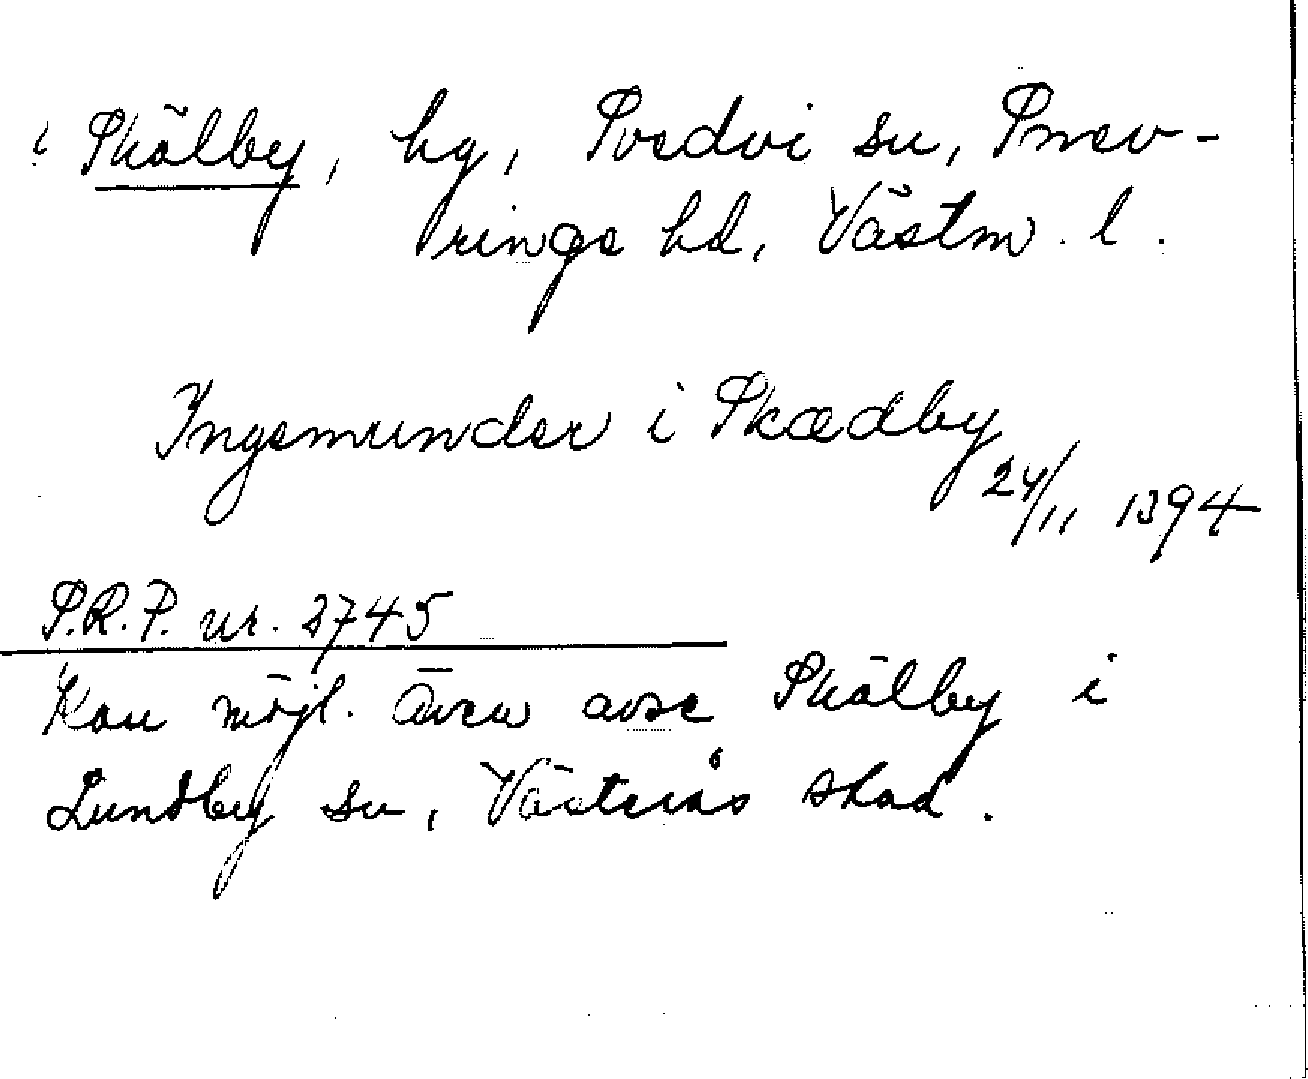 ? Skälby, hg, Svedvi sn, Snev-
ringe hd, Västm. l.
Ingemunder i Skædby
24/11 1394
S.R.P. nr. 2745
Kan möjl. även avse Skälby i
Lundby sn, Västerås stad.